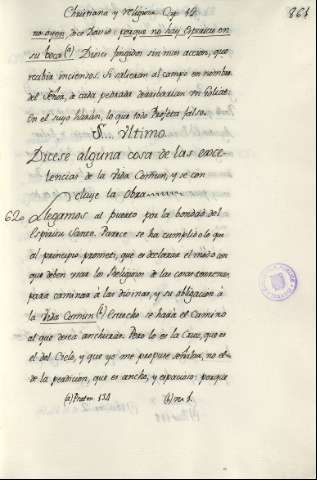 Christiana y Religiosa Cap. 14. 861
no oyen, dice David: porque no hay Espiritu en
su boca (a) Dioses fingidos sin mas accion, que
recibir inciensos. Si salieran al campo en nombre
del Señor, de cada pedrada derribarian un Goliat.
En el suyo harán, lo que todo Profeta falso.
§... Ultimo
Dicese alguna cosa de las exce-
lencias de la Vida Comun, y se con
cluye la Obra
62. Llegamos al puerto por la bondad del
Espiritu Santo. Parece se ha cumplido lo que
al principio prometi, que es declarar el modo con
que deben usar los Religiosos de las cosas terrenas
para caminar á las divinas, y su obligacion á
la Vida Comun (b) Estrecho se haria el Camino
al que desea anchuras. Pero lo es la Cruz, que es
el del Cielo, y que yo me propuse señalar, no el
de la perdicion, que es ancho, y espacioso: porque
(a) Psalm. 134 (b)